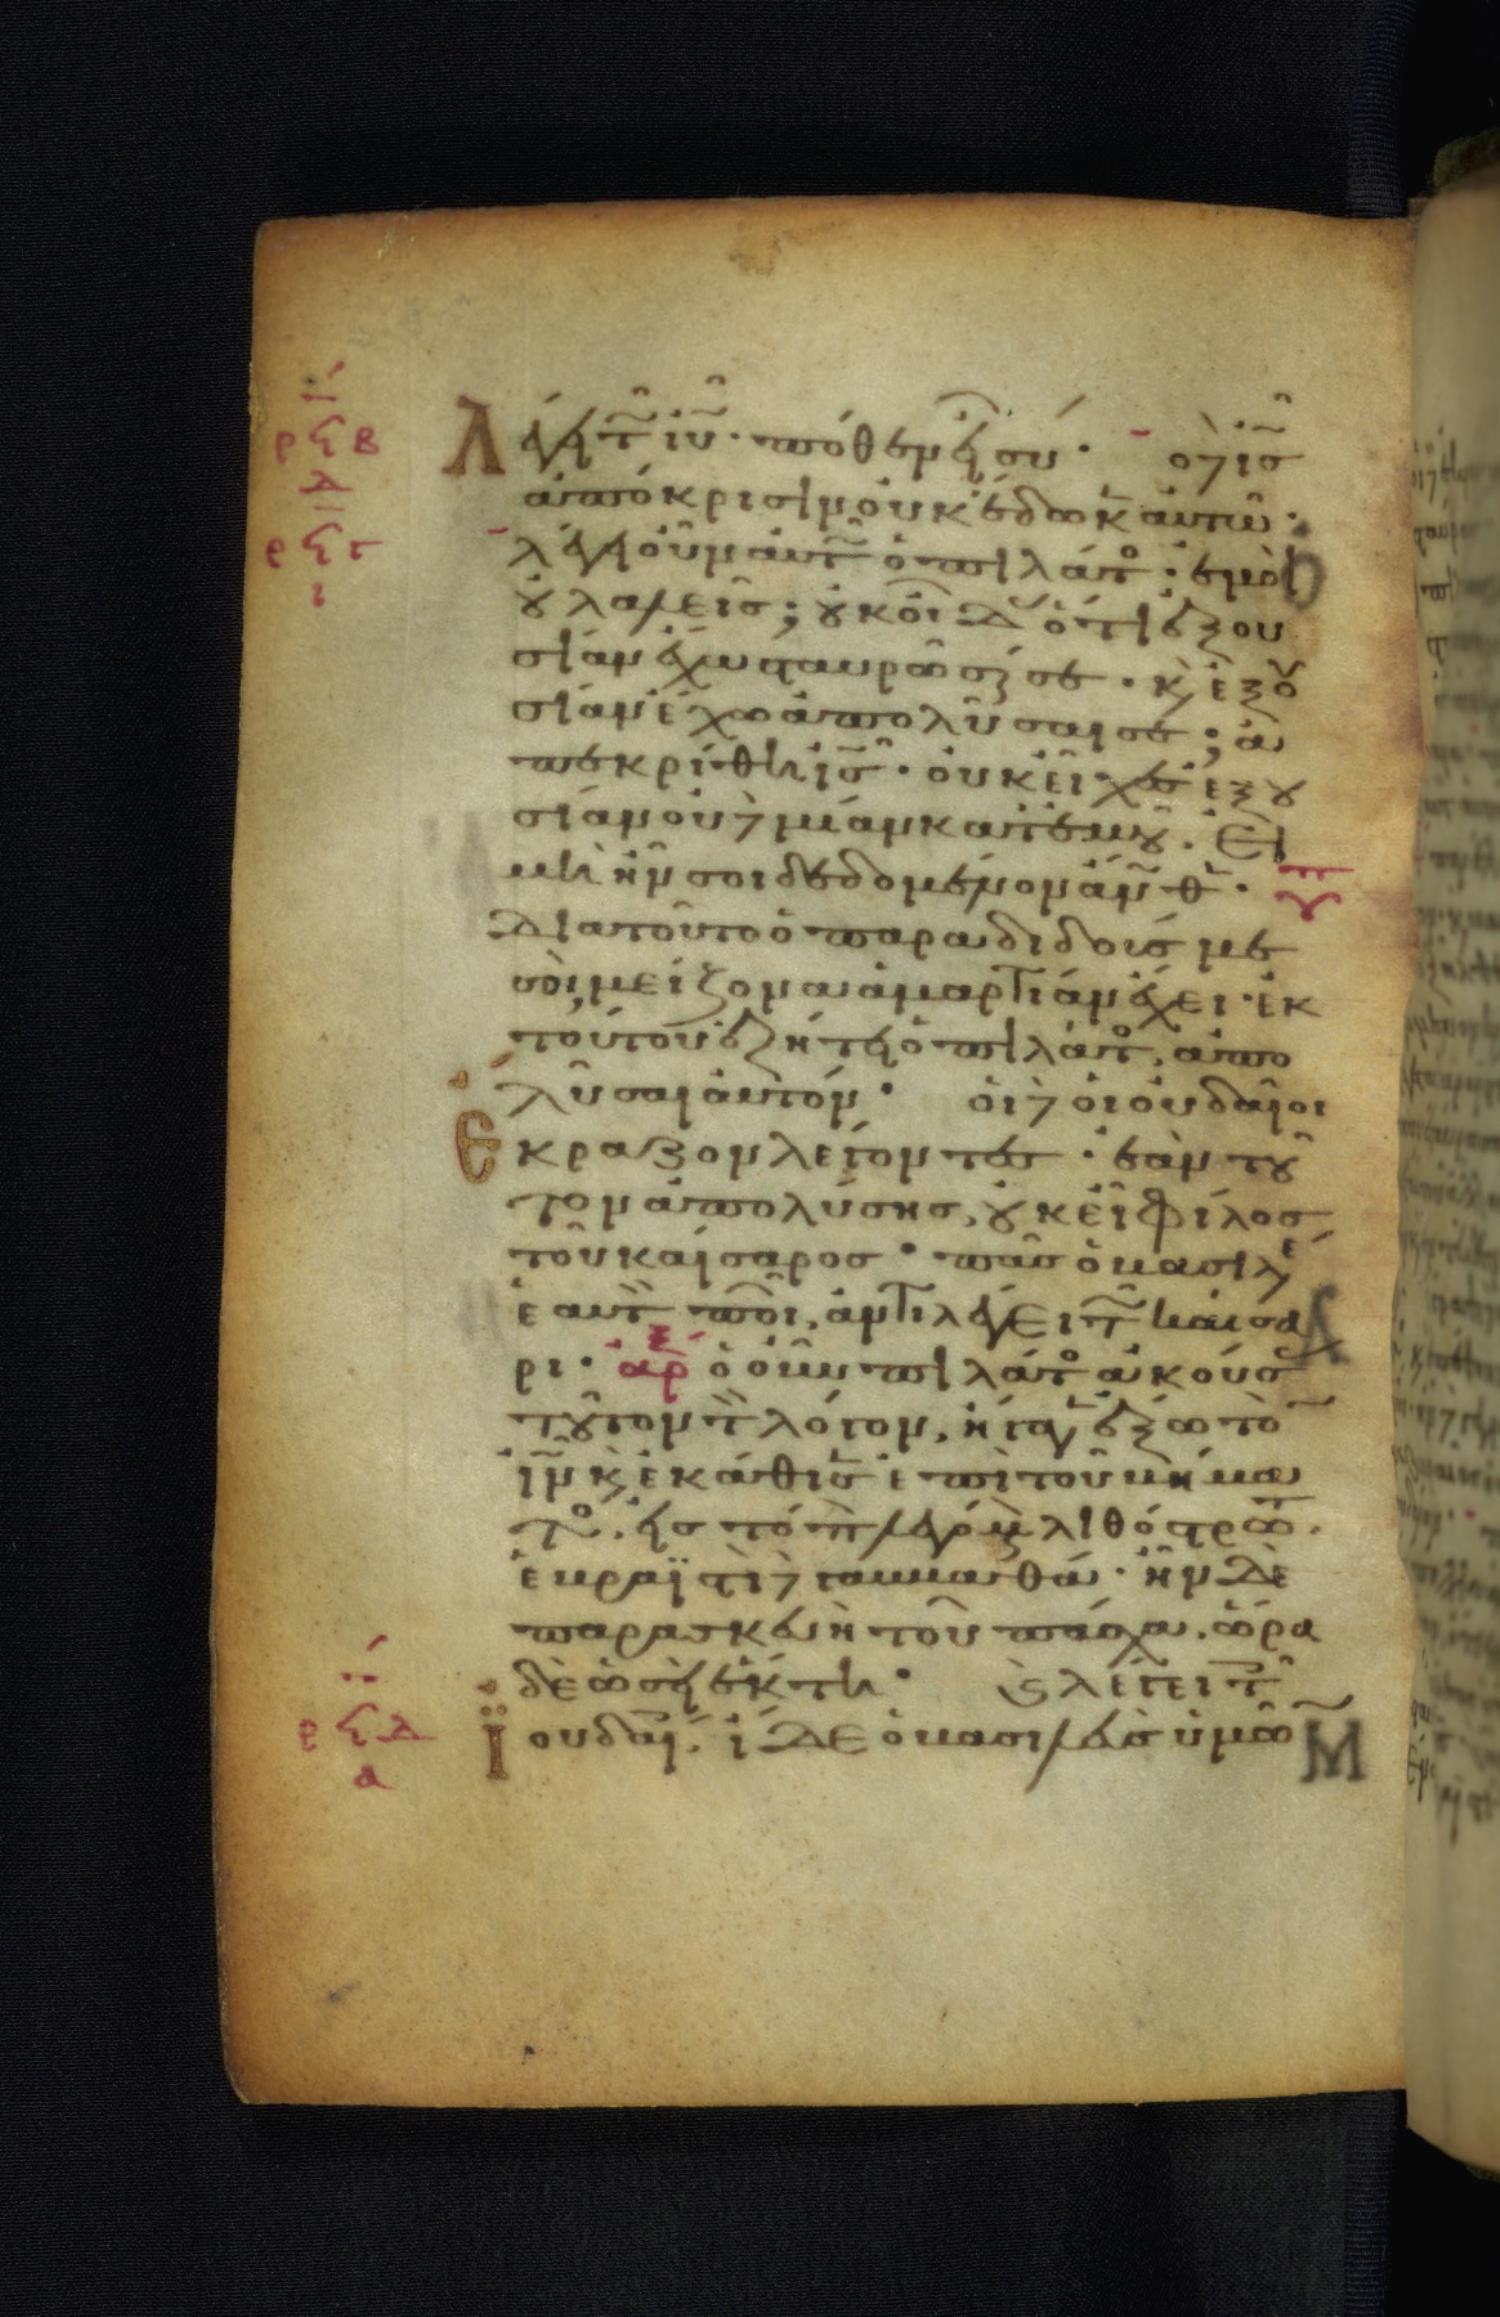 Λέγει τῶ ιῦ· πόθεν εἶ σύ· ὁ δὲ ισ
ἀπόκρισιν οὐκ ἔδωκεν αὐτῶ·
λέγει οὖν αὐτῶ ὁ πιλάτος· ἐμοὶ
οὐ λαλεῖς; οὐκ οἶδας ὅτι ἐξου
σίαν ἔχω σταυρῶσαί σε· κὶ ἐξου
σίαν ἔχω ἀπολῦσαί σε; ἀ
πεκρίθη ισ· οὐκ εἶχες ἐξου
σίαν οὐδεμίαν κατ' ἐμοῦ· εἰ
μὴ ἦν σοι δεδομένον ἄνωθεν·
διατοῦτο ὁ παραδιδούς με
σοὶ μείζονα ἁμαρτίαν ἔχει· ἐκ
τούτου ἐζήτει ὁ πιλάτος, ἀπο
λῦσαι αὐτόν· οἱ δὲ ἰουδαῖοι
ἔκραζον λέγοντες· ἐὰν τοῦ
τον ἀπολύσης, οὐκ εἶ φίλος
τοῦ καίσαρος· πᾶς ὁ βασιλέα
ἑαυτὸν ποιῶν, ἀντιλέγει τῶ καίσα
ρι· ἀρ ὁ οὖν πιλάτος ἀκούσας
τοῦτον τὸν λόγον, ἤγαγεν ἔξω τὸν
ιν κὶ ἐκάθισεν ἐπὶ τοῦ βήμα
τος, εἰς τόπον λεγόμενον λιθόστρωτον·
ἑβραϊστὶ δὲ γαββαθά· ἦν δὲ
παρασκευὴ τοῦ πάσχα, ὥρα
δὲ ὡσεὶ ἕκτη· κὶ λέγει τοῖς
ἰουδαίοις, ἴδε ὁ βασιλεὺς ὑμῶν
ρϟβ
δ
ρϟγ
ι
ρϟδ
α